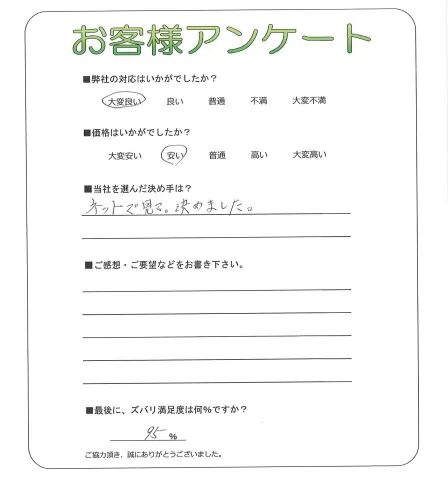 お客様アンケート
■弊社の対応はいかがでしたか？
大変良い 良い 普通 不満 大変不満
■価格はいかがでしたか？
大変安い 安い 普通 高い 大変高い
■当社を選んだ決め手は？
ネットで見て。決めました。
■ご感想・ご要望などをお書き下さい。
■最後に、ズバリ満足度は何%ですか？
95 %
ご協力頂き、誠にありがとうございました。